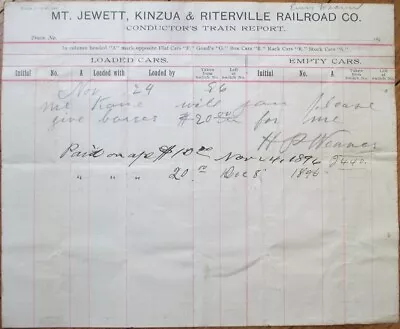 MT. JEWETT, KINZUA & RITERVILLE RAILROAD CO.
CONDUCTOR'S TRAIN REPORT.
Train No.
In column headed "A" mark opposite Flat Cars "F," Gond's "G," Box Cars "B," Rack Cars "R," Stock Cars "S."
LOADED CARS. EMPTY CARS.
Initial No. A Loaded with Loaded with Taken from switch No. Left at switch No. Initial No. A Initial No. A Taken from switch No. Left at switch No.
Nov 24 96
Mr Kane will you please
give bearer $20.00 for me
H P Wenner
Paid on a/c $10.00 Nov 24, 1896
" " " 20.00 Dec 8 1896